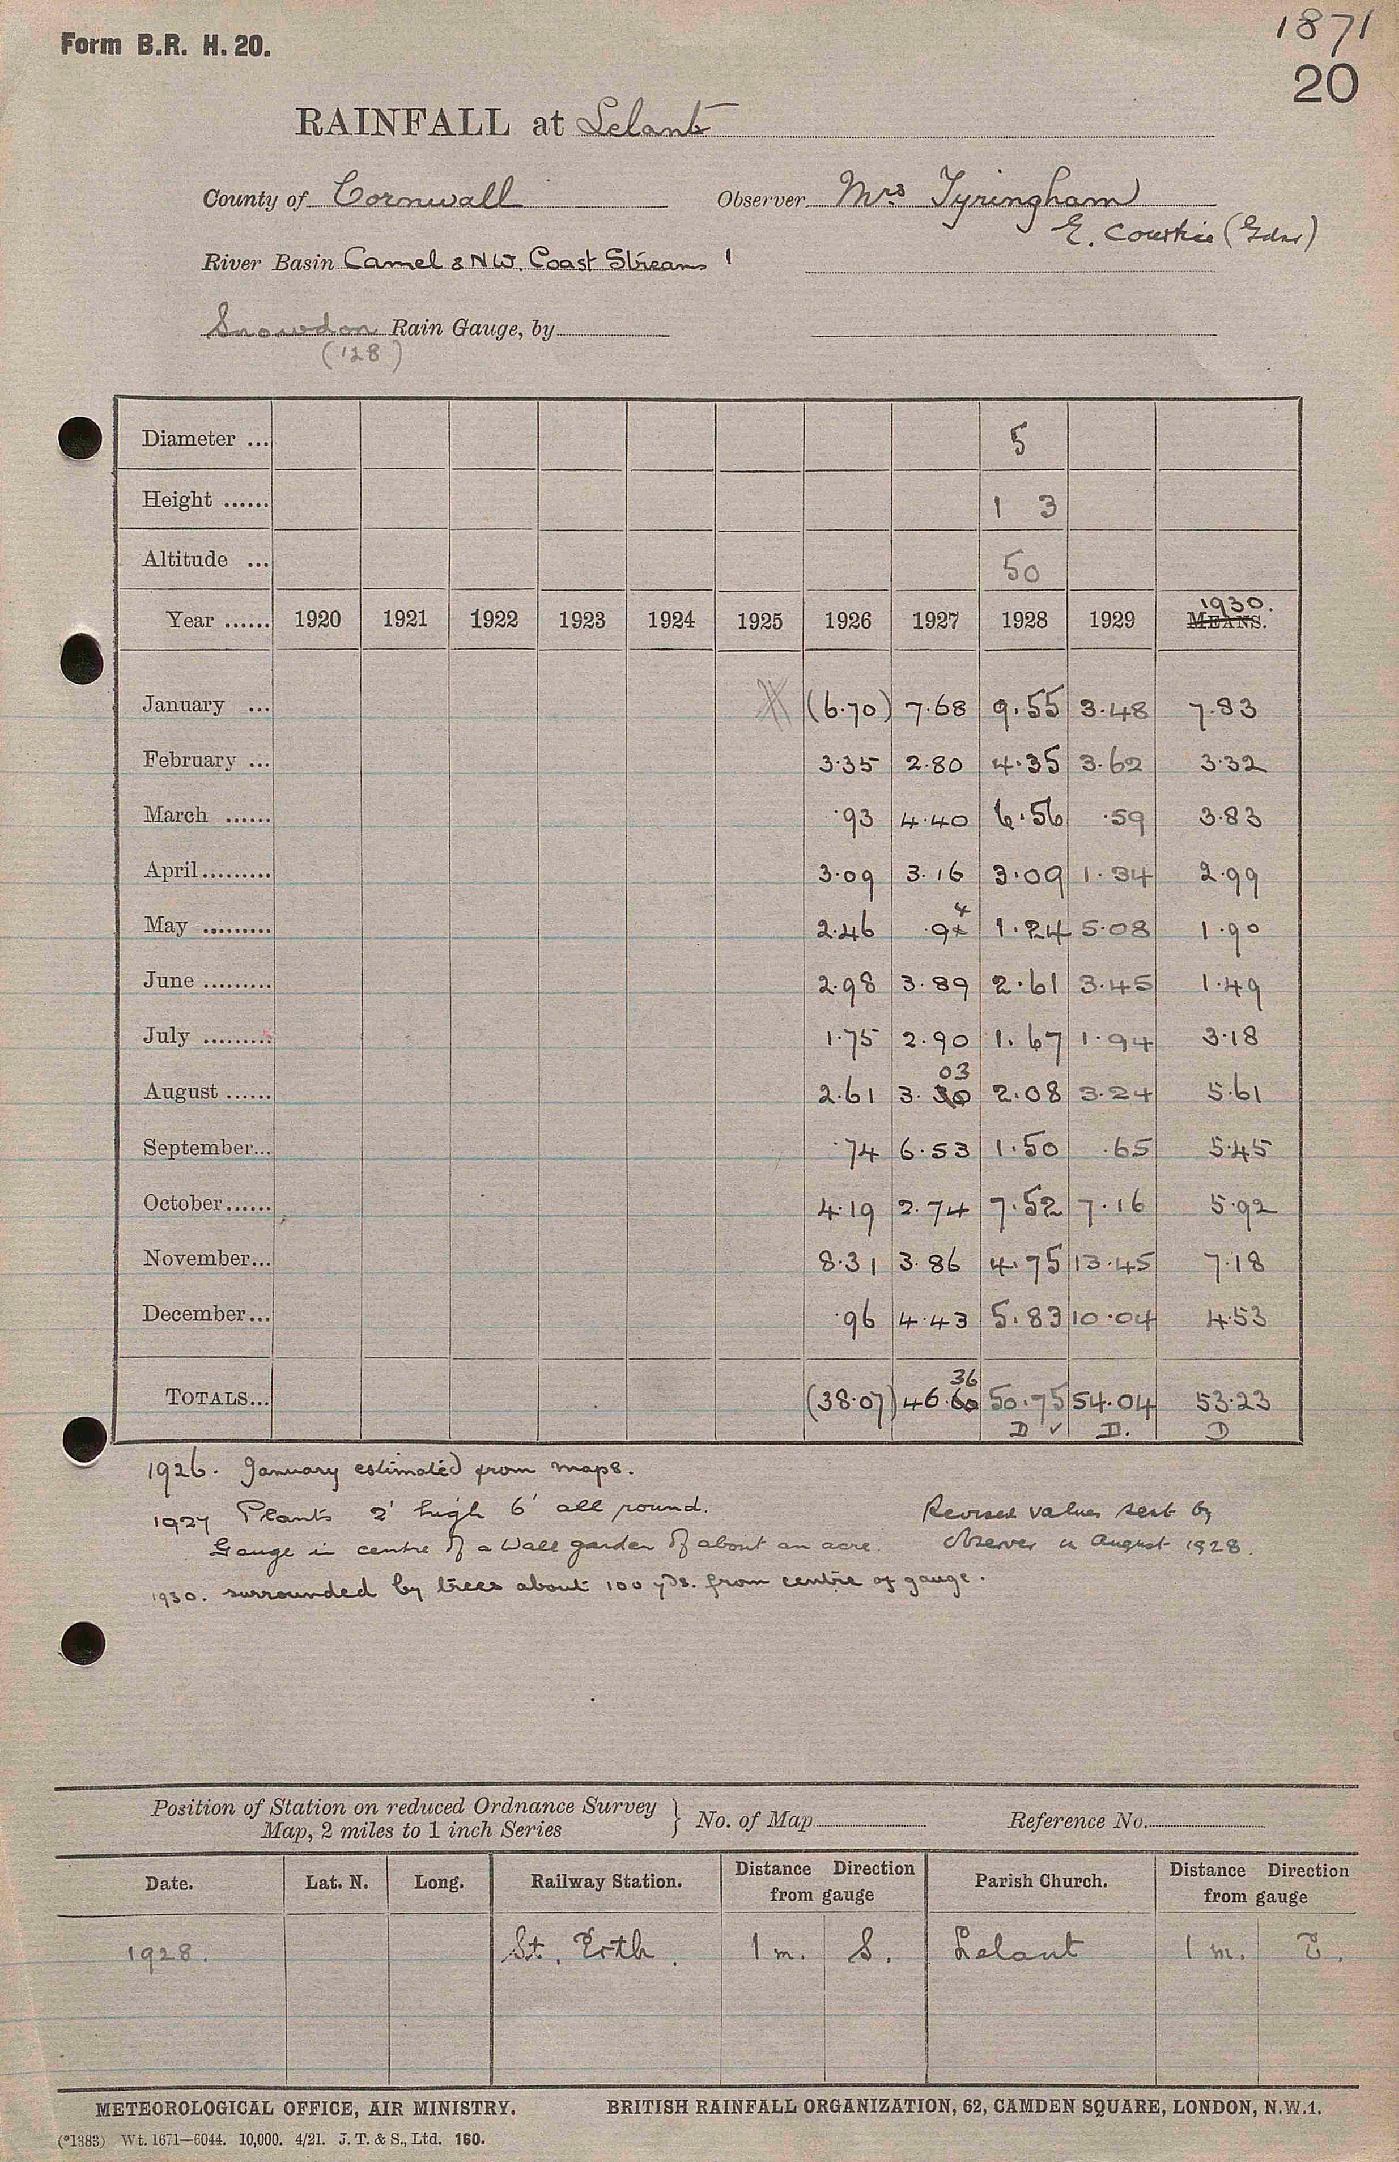 1871
Form B.R. H. 20.
20
RAINFALL at Lelant
County of Cornwall Observer Mrs Tyringham
E. (Gdnr)
River Basin Camel & NW. Coast Streams 1
Snowdon Rain Gauge, by
(128)
Diameter ... 5
Height ...... 1 3
Altitude ... 50
1930.
Year ...... 1920 1921 1922 1923 1924 1925 1926 1927 1928 1929 MEANS.
January ... (6.70) 7.68 9.55 3.48 7.83
February ... 3.35 2.80 4.35 3.62 3.32
March ...... .93 4.40 6.56 .59 3.83
April ......... 3.09 3.16 3.09 1.34 2.99
4
May ......... 2.46 .9 1.24 5.08 1.90
June ......... 2.98 3.89 2.61 3.45 1.49
July ......... 1.75 2.90 1.67 1.94 3.18
03
August ...... 2.61 3.30 2.08 3.24 5.61
September... .74 6.53 1.50 .65 5.45
October...... 4.19 2.74 7.52 7.16 5.92
November... 8.31 3.86 4.75 13.45 7.18
December... .96 4.43 5.83 10.04 4.53
36
TOTALS... (38.07) 46.60 50.75 54.04 53.23
D ✓ D. D
1926. January estimated from maps.
1927 Plants 2' high 6' all round. Revised values sent by
Gauge in centre of a wall garden of about an acre. observer in August 1928.
1930. surrounded by trees about 100 yds. from centre of gauge.
Position of Station on reduced Ordnance Survey
Map, 2 miles to 1 inch Series } No. of Map Reference No.
Date. Lat. N. Long. Railway Station. Distance Direction from gauge Parish Church. Distance Direction from gauge
1928. St. Erth. 1 m. S. Lelant 1 m. E.
METEOROLOGICAL OFFICE, AIR MINISTRY. BRITISH RAINFALL ORGANIZATION, 62, CAMDEN SQUARE, LONDON, N.W.1.
(*1383) Wt. 1671—6044. 10,000. 4/21. J. T. & S., Ltd. 160.